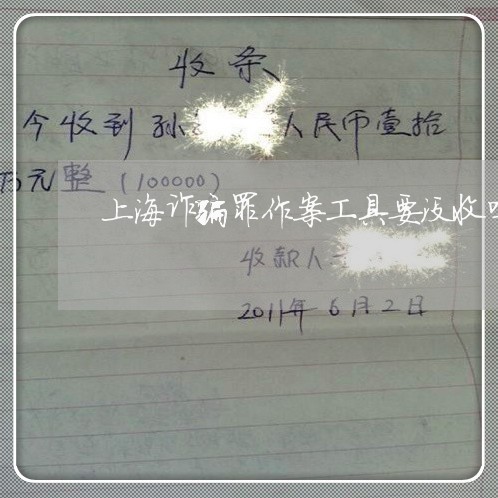 收条
今收到孙 人民币壹拾
万元整（100000）
上海诈骗罪作案工具要没收
收款人
2011年6月2日